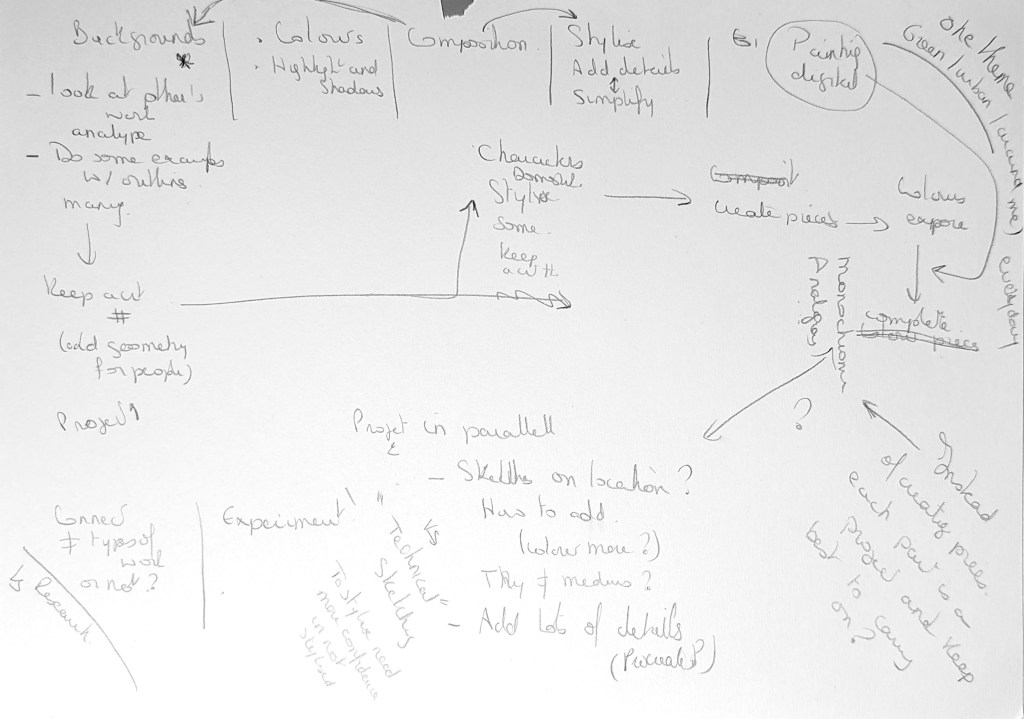 Backgrounds
- look at other's
work
analyse
- Do some examples
w/ outlines
many
Keep
#
(add geometry
for people)
Project 1
. Colours
. Highlight and
Shadows
Composition
Stylise
Add details
Simplify
Painting
digital
one theme
Green / urban / around me)
everyday
Characters
Stylise
some
keep
Composit
create pieces
Colours
complete
colour pieces
monochrome
?
Instead
of creating pieces
each part is a
project and keep
best to carry
on?
Project in parallell
- Sketches on location?
How to add
(colour more?)
Try ≠ mediums?
- Add lots of details
"Technical"
Sketching
To stylise need
more confidence
in not
stylised
Connect
≠ types of
work
or not?
Research
Experiment